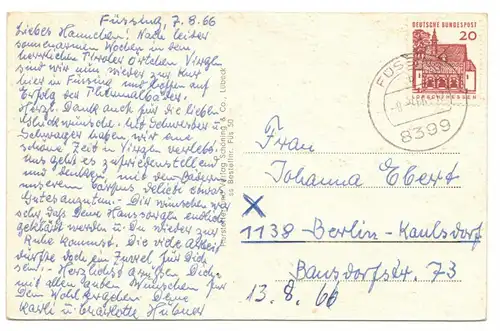 Füssing, 7.8.66
Liebes Hannchen! Nach leider
sonnenarmen Wochen in dem
herrlichen Tiroler Örtchen Virgln
sind wir nun wieder zur Kur
hier in Füssing und hoffen auf
Erfolg der Thermalbäder.
Herzl. Dank auch für die lieben
Glückwünsche. Mit Schwester u.
Schwager haben wir eine
schöne Zeit in Virgln verlebt.
Uns geht es zufriedenstellend
und denken, mit den Bädern
unserem Corpus delicti etwas
Gutes anzutun. - Dir wünschen wir
sehr, daß Deine Haussorgen endlich
geklärt werden u. Du wieder zur
Ruhe kommst. Die viele Arbeit
dürfte doch ein Zuviel für Dich
sein. - Herzlichst grüßen Dich
mit allen guten Wünschen für
Dein Wohlergehen Deine
Karli u Charlotte Hübner
Schöning & Co., Lübeck
Bestellnr. Füs 50
DEUTSCHE BUNDESPOST
20
LORSCH/HESSEN
FÜSS
8399
Frau
Johanna Ebert
1138 Berlin-Kaulsdorf
Bausdorfstr. 73
13.8.66